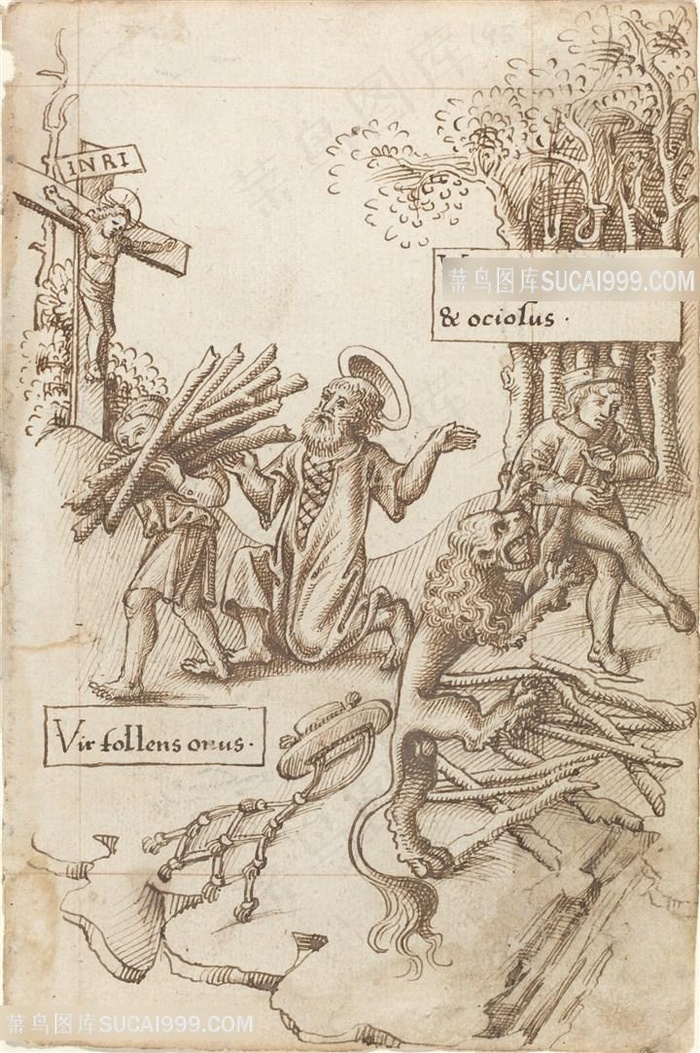 INRI
菜鸟图库SUCAI999.COM
& ociosus ·
Vir tollens onus ·
菜鸟图库SUCAI999.COM